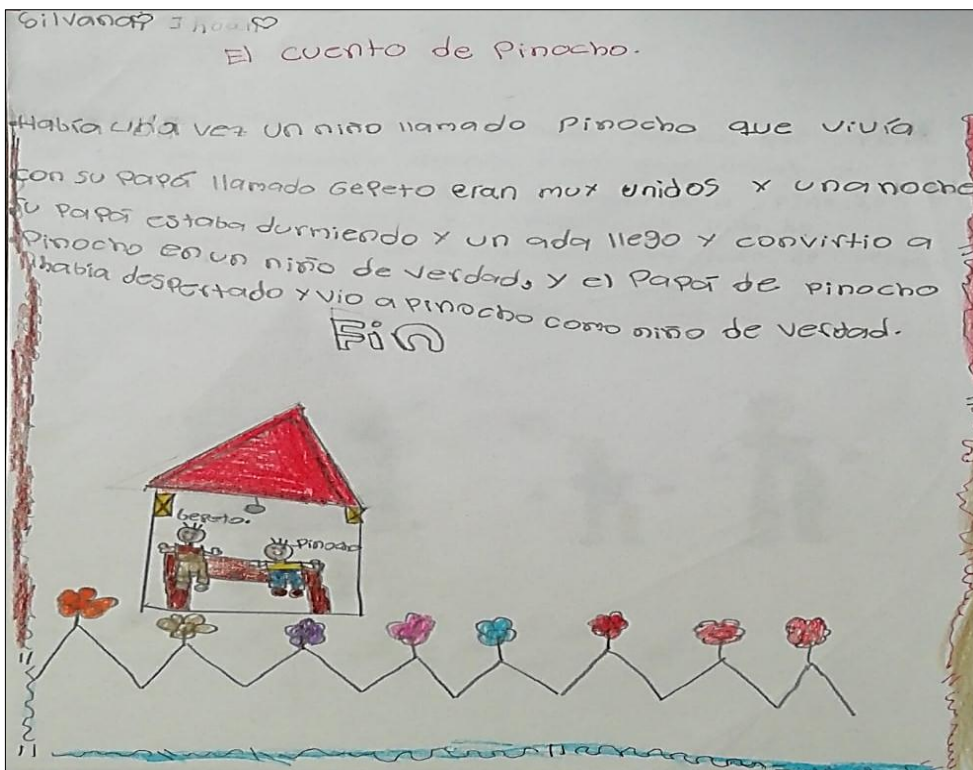 Silvana
El cuento de Pinocho.
Había una vez un niño llamado Pinocho que vivía
con su papá llamado Gepeto eran muy unidos y una noche
su papá estaba durmiendo y un ada llego y convirtio a
Pinocho en un niño de verdad, y el Papá de pinocho
había despertado y vio a pinocho como niño de verdad.
Fin
Gepeto.
Pinocho